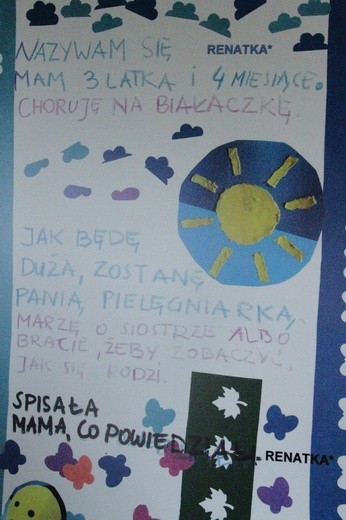 NAZYWAM SIĘ RENATKA*
MAM 3 LATKA I 4 MIESIĄCE.
CHORUJĘ NA BIAŁACZKĘ.
JAK BĘDĘ
DUŻA, ZOSTANĘ
PANIĄ PIELĘGNIARKĄ,
MARZĘ O SIOSTRZE ALBO
BRACIE, ŻEBY ZOBACZYĆ,
JAK SIĘ RODZI.
SPISAŁA
MAMA, CO POWIEDZIAŁA. RENATKA*